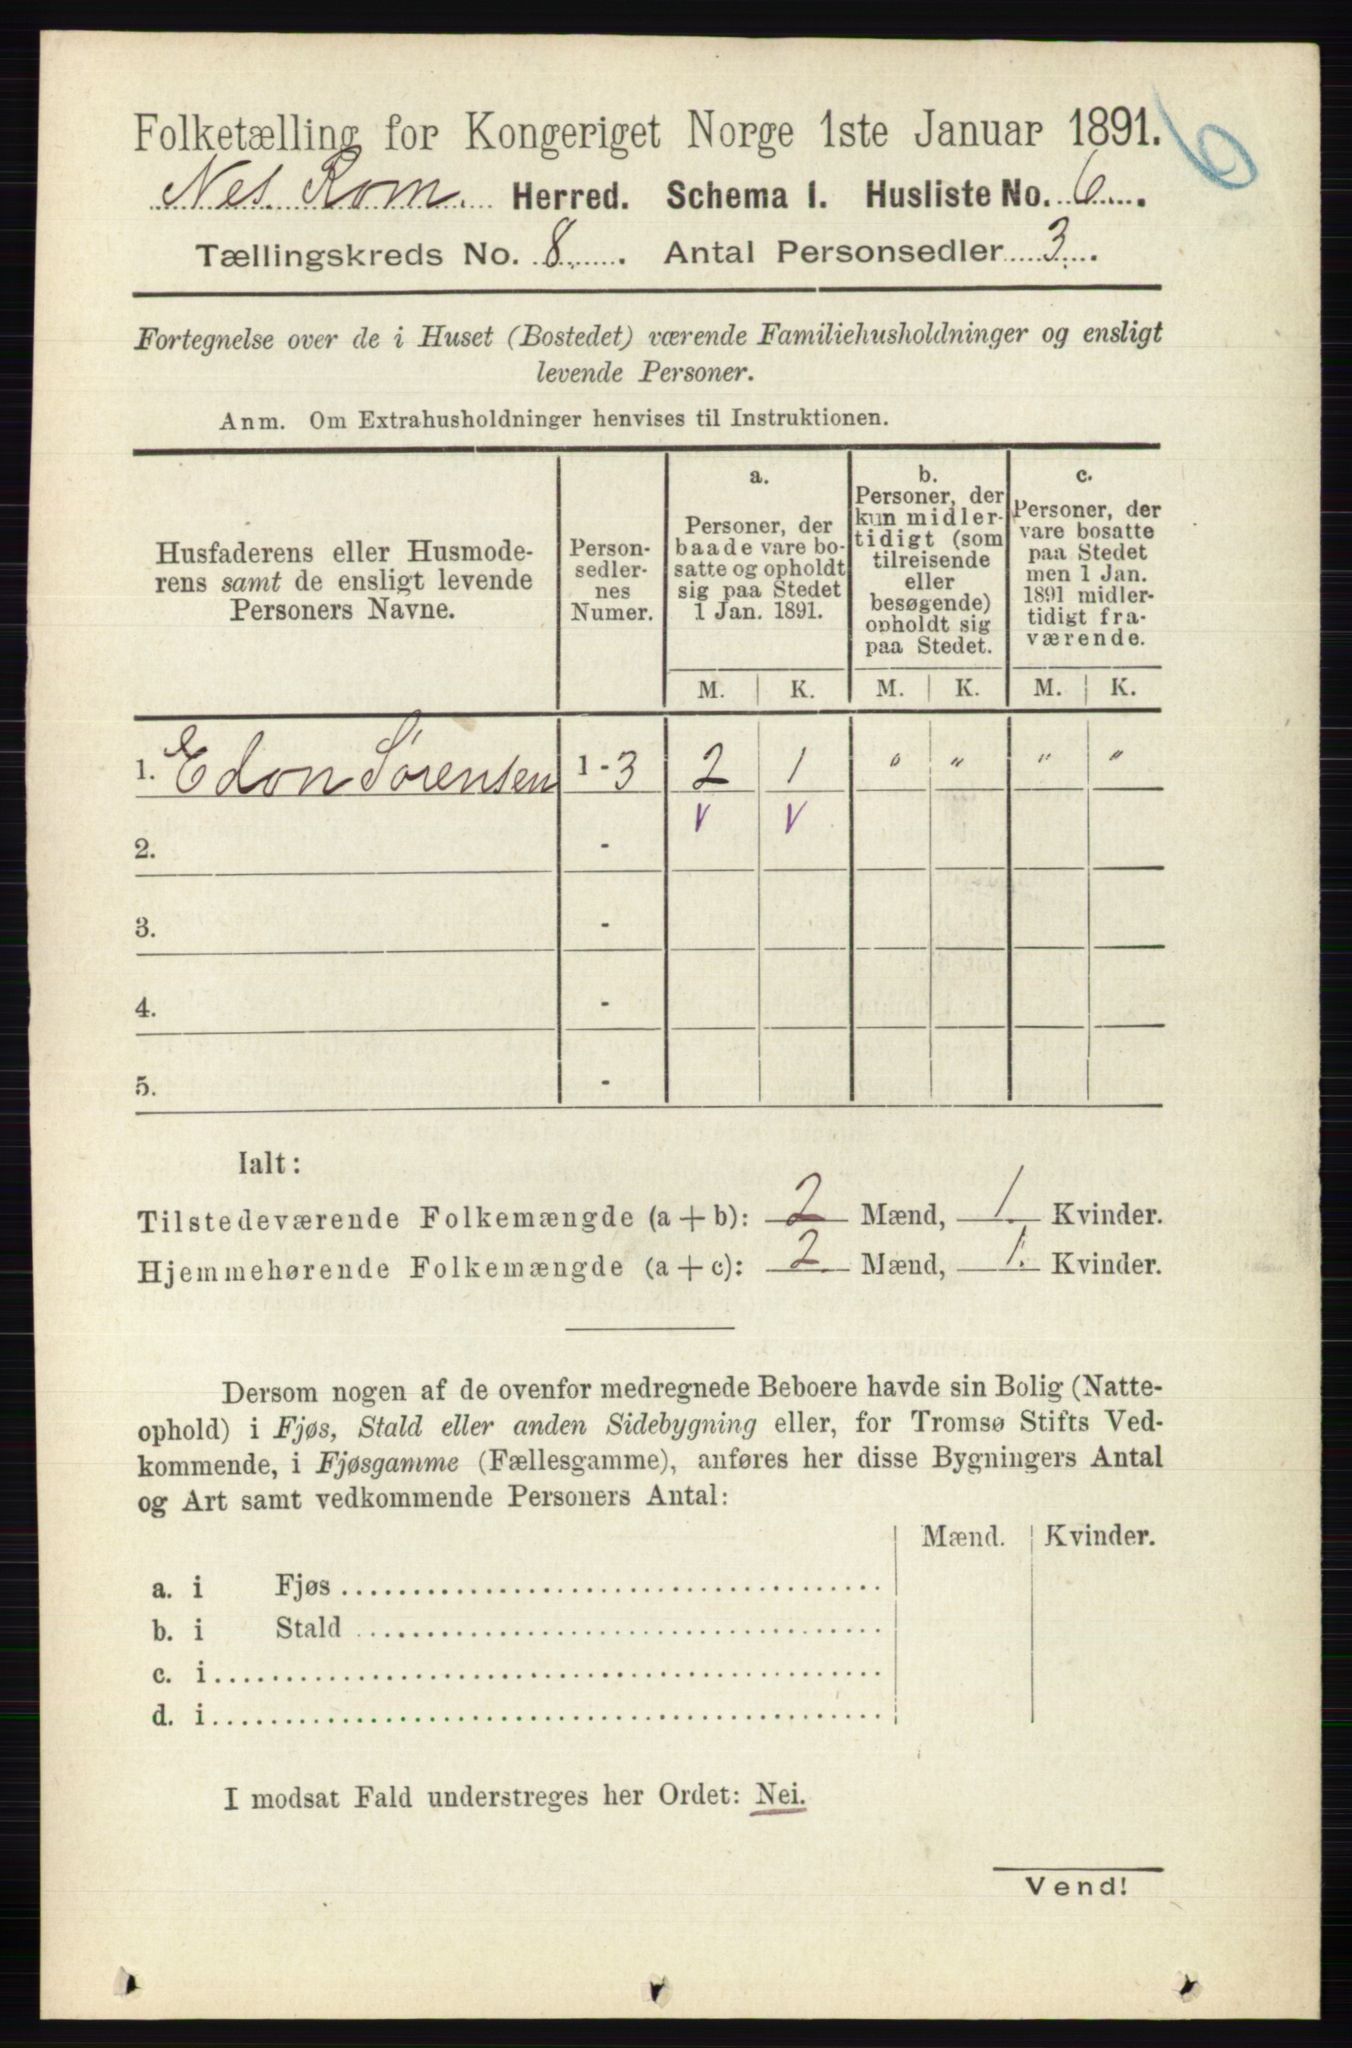 Folketælling for Kongeriget Norge 1ste Januar 1891.
6
Nes. Rom. Herred. Schema 1. Husliste No. 6.
Tællingskreds No. 8. Antal Personsedler 3.
Fortegnelse over de i Huset (Bostedet) værende Familiehusholdninger og ensligt
levende Personer.
Anm. Om Extrahusholdninger henvises til Instruktionen.
Husfaderens eller Husmode-
rens samt de ensligt levende
Personers Navne.
Person-
sedler-
nes
Numer.
a.
Personer, der
baade vare bo-
satte og opholdt
sig paa Stedet
1 Jan. 1891.
b.
Personer, der
kun midler-
tidigt (som
tilreisende
eller
besøgende)
opholdt sig
paa Stedet.
c.
Personer, der
vare bosatte
paa Stedet
men 1 Jan.
1891 midler-
tidigt fra-
værende.
M. K. M. K. M. K.
1. Edon Sørensen 1-3 2 1 " " " "
2. - V V
3. -
4. -
5. -
Ialt:
Tilstedeværende Folkemængde (a + b): 2 Mænd, 1. Kvinder.
Hjemmehørende Folkemængde (a + c): 2. Mænd, 1. Kvinder.
Dersom nogen af de ovenfor medregnede Beboere havde sin Bolig (Natte-
ophold) i Fjøs, Stald eller anden Sidebygning eller, for Tromsø Stifts Ved-
kommende, i Fjøsgamme (Fællesgamme), anføres her disse Bygningers Antal
og Art samt vedkommende Personers Antal:
Mænd. Kvinder.
a. i Fjøs
b. i Stald
c. i
d. i
I modsat Fald understreges her Ordet: Nei.
Vend!